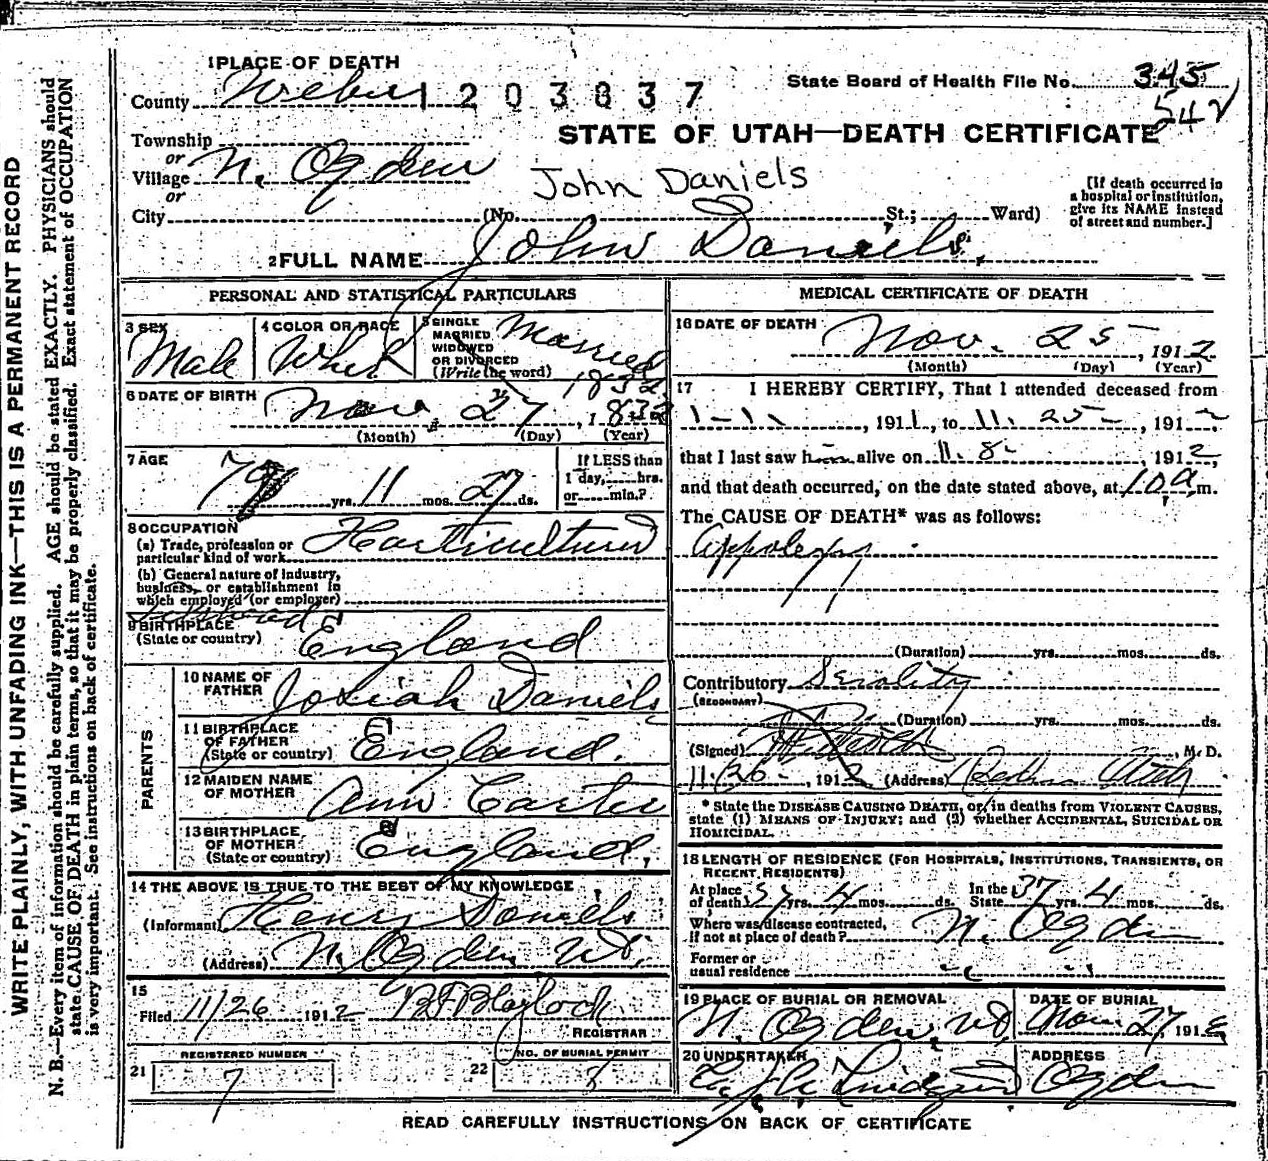 WRITE PLAINLY, WITH UNFADING INK—THIS IS A PERMANENT RECORD
N. B.—Every item of information should be carefully supplied. AGE should be stated EXACTLY. PHYSICIANS should
state CAUSE OF DEATH in plain terms, so that it may be properly classified. Exact statement of OCCUPATION
is very important. See instructions on back of certificate.
1 PLACE OF DEATH
State Board of Health File No. 345
County Weber 1203037
542
STATE OF UTAH—DEATH CERTIFICATE
Township
or
Village N. Ogden
or
John Daniels
[If death occurred in
a hospital or institution,
give its NAME instead
of street and number.]
City (No. St.; Ward)
2 FULL NAME John Daniels.
PERSONAL AND STATISTICAL PARTICULARS
3 SEX
Male
4 COLOR OR RACE
White
5 SINGLE
MARRIED
WIDOWED
OR DIVORCED
(Write the word)
Married
1832
6 DATE OF BIRTH
Nov. 27, 1832
(Month) (Day) (Year)
7 AGE
79 yrs. 11 mos. 27 ds.
If LESS than
1 day, hrs.
or min.?
8 OCCUPATION
(a) Trade, profession or
particular kind of work
(b) General nature of industry,
business, or establishment in
which employed (or employer)
9 BIRTHPLACE
(State or country) England
PARENTS
10 NAME OF
FATHER Josiah Daniels
11 BIRTHPLACE
OF FATHER
(State or country) England.
12 MAIDEN NAME
OF MOTHER Ann Carter
13 BIRTHPLACE
OF MOTHER
(State or country) England,
14 THE ABOVE IS TRUE TO THE BEST OF MY KNOWLEDGE
(Informant) Henry Daniels
(Address) N. Ogden Ut.
15
Filed 11/26 1912 B F Blaylock
REGISTRAR
REGISTERED NUMBER
21 7
NO. OF BURIAL PERMIT
22 7
MEDICAL CERTIFICATE OF DEATH
16 DATE OF DEATH
Nov. 25, 1912
(Month) (Day) (Year)
17 I HEREBY CERTIFY, That I attended deceased from
1-1, 1911, to 11. 25- , 1912,
that I last saw him alive on 11. 8- , 1912,
and that death occurred, on the date stated above, at 10 a m.
The CAUSE OF DEATH* was as follows:
(Duration) yrs. mos. ds.
Contributory
(SECONDARY)
(Duration) yrs. mos. ds.
(Signed) , M. D.
11/26- , 1912 (Address) Utah
* State the DISEASE CAUSING DEATH, or, in deaths from VIOLENT CAUSES,
state (1) MEANS OF INJURY; and (2) whether ACCIDENTAL, SUICIDAL OR
HOMICIDAL.
18 LENGTH OF RESIDENCE (FOR HOSPITALS, INSTITUTIONS, TRANSIENTS, OR
RECENT RESIDENTS)
At place
of death yrs. 4 mos. ds.
In the
State 37 yrs. 4 mos. ds.
Where was disease contracted,
if not at place of death? N. Ogden
Former or
usual residence " "
19 PLACE OF BURIAL OR REMOVAL
N. Ogden, Ut.
DATE OF BURIAL
Nov. 27 191
20 UNDERTAKER
ADDRESS
Ogden
READ CAREFULLY INSTRUCTIONS ON BACK OF CERTIFICATE